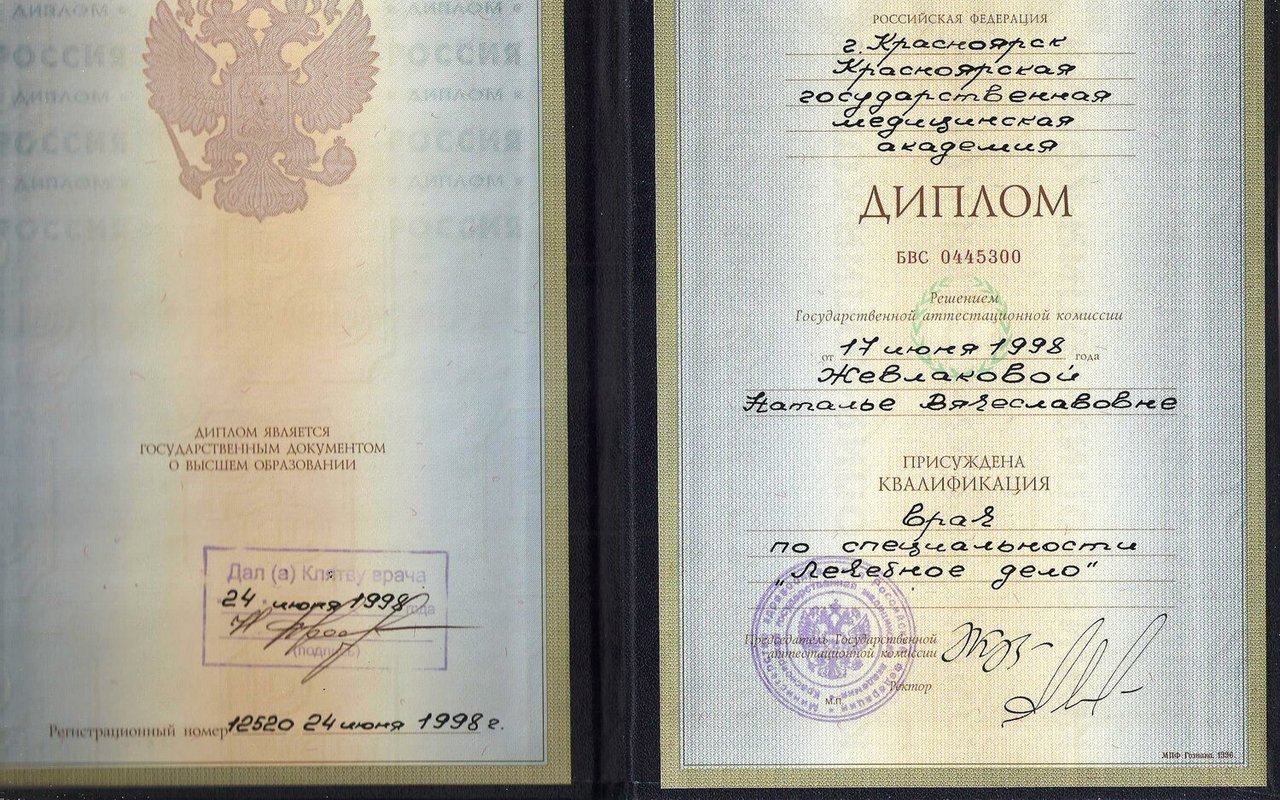 ДИПЛОМ
ДИПЛОМ
РОССИЯ
РОССИЯ
ДИПЛОМ
ДИПЛОМ
РОССИЯ
РОССИЯ
ДИПЛОМ
ДИПЛОМ
РОССИЯ
РОССИЯ
ДИПЛОМ ЯВЛЯЕТСЯ
ГОСУДАРСТВЕННЫМ ДОКУМЕНТОМ
О ВЫСШЕМ ОБРАЗОВАНИИ
Дал (а) Клятву врача
24 июня 1998 года
(подпись)
Регистрационный номер 12520 24 июня 1998 г.
РОССИЙСКАЯ ФЕДЕРАЦИЯ
г. Красноярск
Красноярская
государственная
медицинская
академия
ДИПЛОМ
БВС 0445300
Решением
Государственной аттестационной комиссии
от 17 июня 1998 года
Жевлаковой
Наталье Вячеславовне
ПРИСУЖДЕНА
КВАЛИФИКАЦИЯ
врач
по специальности
„Лечебное дело"
Председатель Государственной
аттестационной комиссии
Ректор
М.П.
МПФ Гознака. 1996.